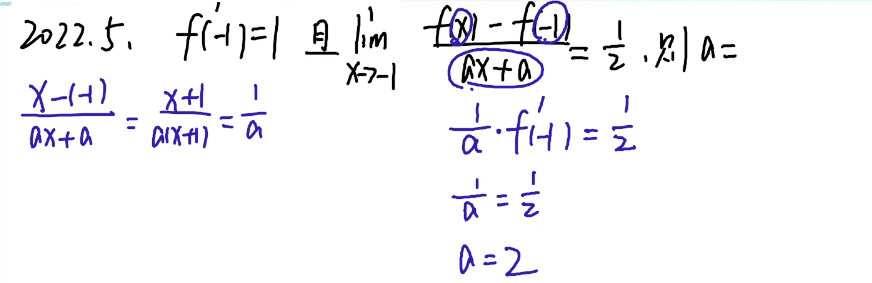 2022.5. f'(-1)=1 且 lim x→-1 (f(x)-f(-1))/(ax+a) = 1/2. 则 a=
(x-(-1))/(ax+a) = (x+1)/(a(x+1)) = 1/a
1/a · f'(-1) = 1/2
1/a = 1/2
a=2